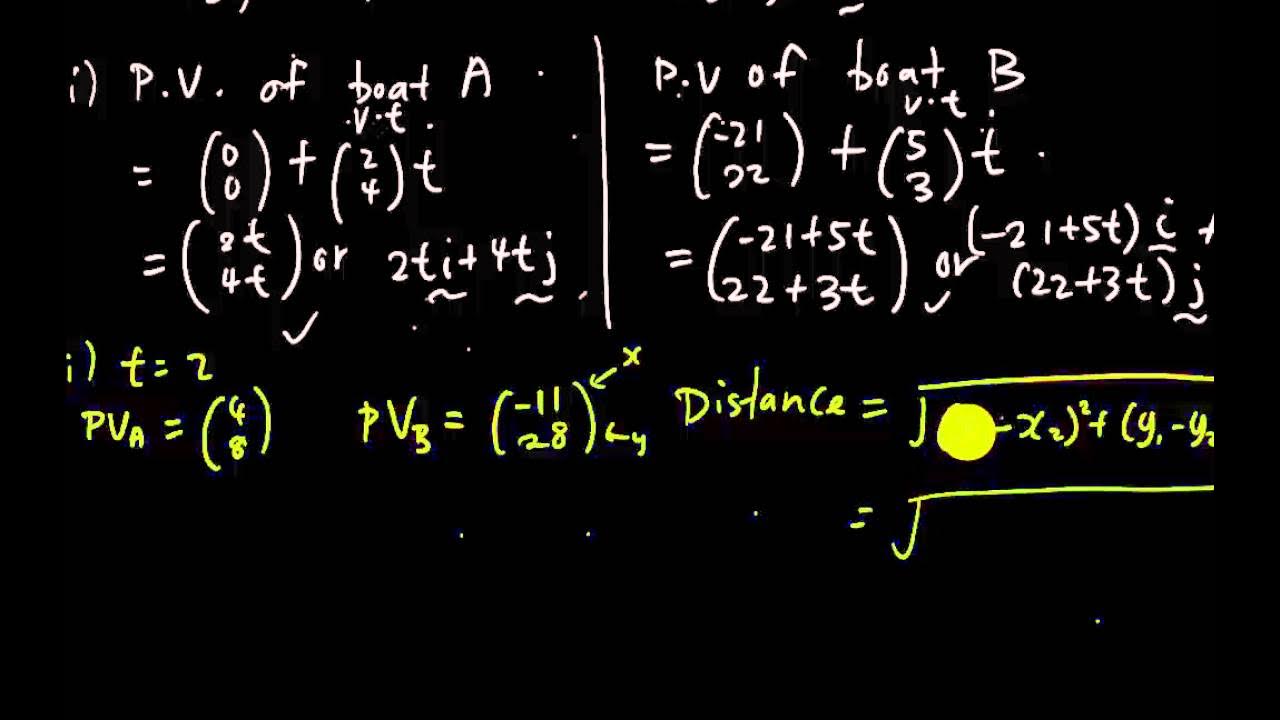 i) P.V. of boat A
v.t
= (0 0) + (2 4) t
= (2t 4t) or 2ti + 4tj
P.V of boat B
v.t
= (-21 22) + (5 3) t
= (-21+5t 22+3t) or (-21+5t) i +
(22+3t) j
i) t = 2
PVA = (4 8)
PVB = (-11 28) ← x ← y
Distance = √ -x2)² + (y1 - y2
= √